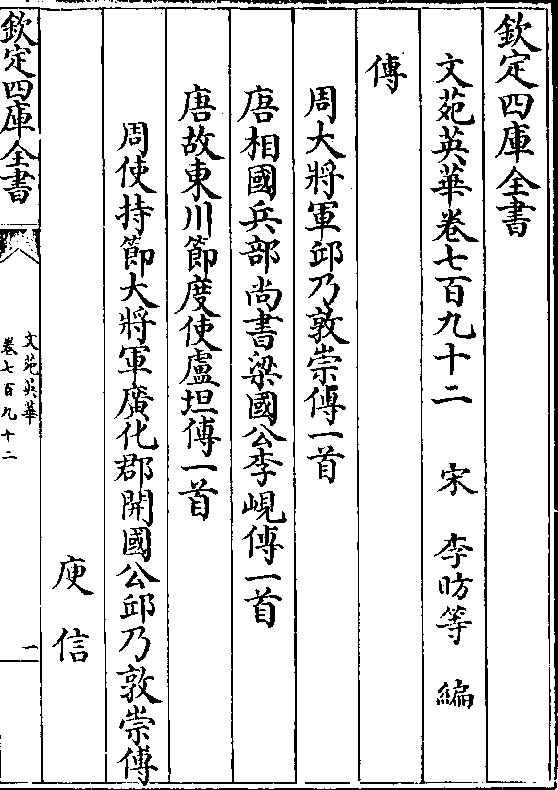 欽定四庫全書
文苑英華卷七百九十二 宋 李昉等 編
傳
周大將軍邱乃敦崇傳一首
唐相國兵部尚書梁國公李峴傳一首
唐故東川節度使盧坦傳一首
周使持節大將軍廣化郡開國公邱乃敦崇傳
庾信
欽定四庫全書
文苑英華
卷七百九十二
一